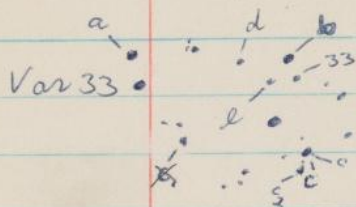 a d b
Var 33 33
e
c
c2